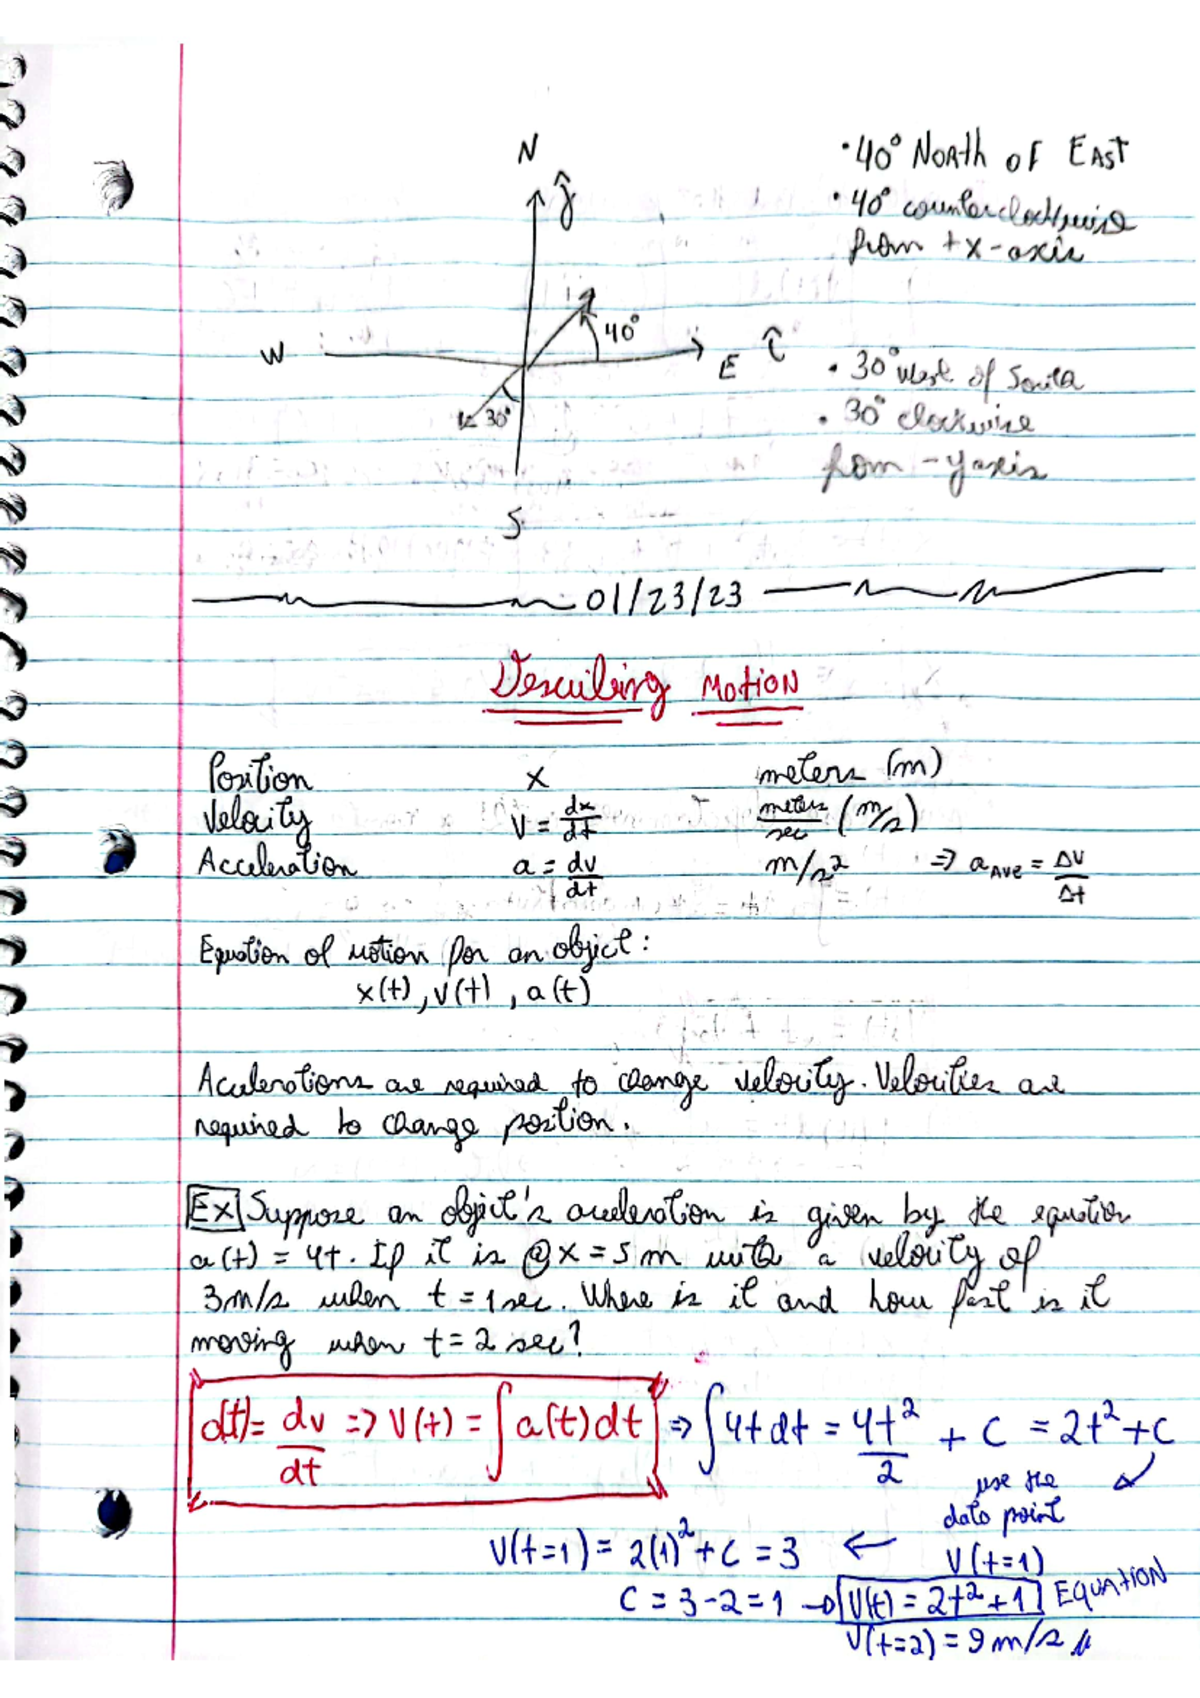 N
ĵ
• 40° North of East
• 40° counterclockwise
from +x-axis
40°
W
E î
• 30° West of South
• 30° clockwise
from -y axis
30°
S
01/23/23
Describing Motion
Position x meters (m)
Velocity v = dx/dt meters/sec (m/s)
Acceleration a = dv/dt m/s² => a Ave = Δv/Δt
Equation of motion for an object:
x(t), v(t), a(t)
Accelerations are required to change velocity. Velocities are
required to change position.
Ex Suppose an object's acceleration is given by the equation
a(t) = 4t. If it is @ x = 5 m with a velocity of
3 m/s when t = 1 sec. Where is it and how fast is it
moving when t = 2 sec?
a(t) = dv/dt => v(t) = ∫a(t)dt => ∫4t dt = 4t²/2 + C = 2t² + C
use the
data point
v(t=1) = 2(1)² + C = 3 ← v(t=1)
C = 3 - 2 = 1 → v(t) = 2t² + 1 EQUATION
v(t=2) = 9 m/s